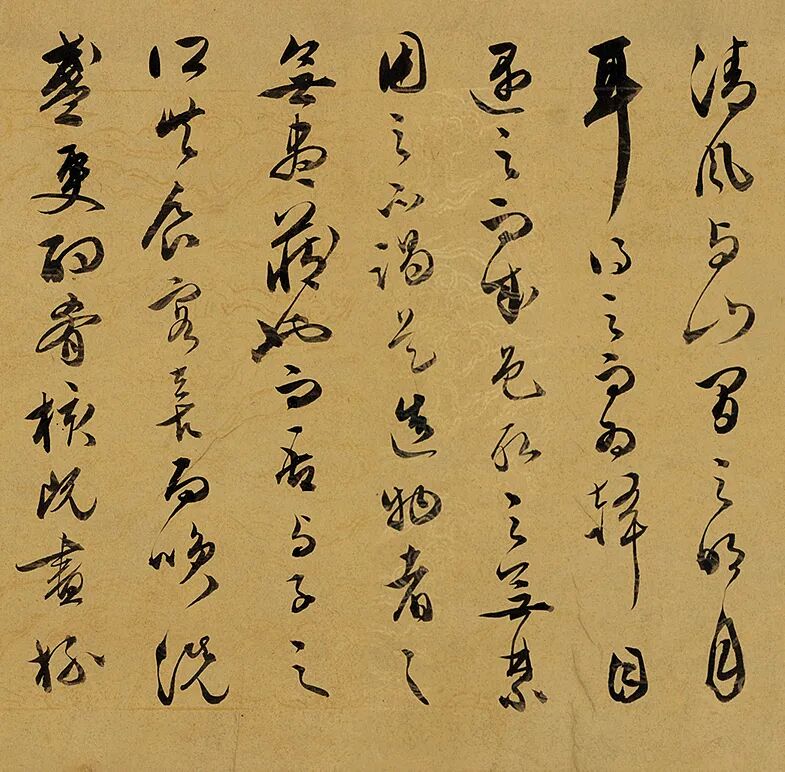 清風与山間之明月
耳得之而為聲目
遇之而成色取之無禁
用之不竭是造物者之
無盡藏也而吾与子之
所共食客喜而咲洗
盞更酌肴核既盡杯